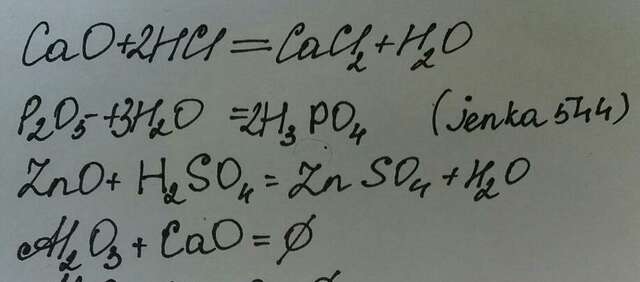 CaO+2HCl=CaCl₂+H₂O
P₂O₅+3H₂O=2H₃PO₄ (jenka 544)
ZnO+H₂SO₄=ZnSO₄+H₂O
Al₂O₃+CaO=Ø